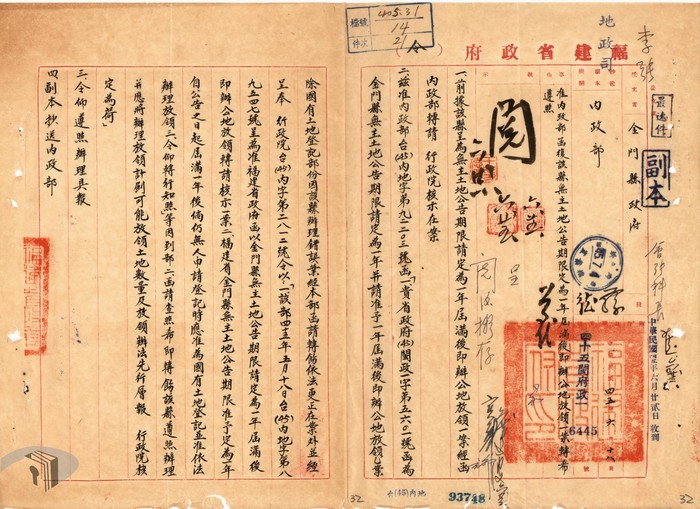 檔號
405.31
14
件次
2
福建省政府（令）
地政司
李張
最速件
副本
金門縣政府
內政部
准內政部函復該縣無主土地公告期限定為一年屆滿後即辦公地放領一案轉希
遵照
閱
中華民國
月廿貳日收到
四十五閩府政
6445
一、前據該縣呈為無主土地公告期限請定為一年屆滿後即辦公地放領一案經函
內政部轉請　行政院核示在案
二、茲准內政部台(45)內地字第九二〇三號函「貴省政府(45)閩政字第五六〇一號函為
金門縣無主土地公告期限請定為一年并請准予一年屆滿後即辦公地放領乙案
除國有土地登記部份因該縣辦理錯誤業經本部函請轉飭依法更正在案外並經
呈奉　行政院台(45)內字第二八一二號令以「該部四五年五月十八日台(45)內地字第八
九五四七號呈為准福建省政府函以金門縣無主土地公告期限請定為一年屆滿後
即辦公地放領轉請核示一案二、福建省金門縣無主土地公告期限准予定為一年
自公告之日起屆滿一年後倘仍無人申請登記時應准為國有土地登記並准依法
辦理放領三、令仰轉行知照」等因到部二、函請查照希即轉飭該縣遵照辦理
并應將辦理放領計劃可能放領土地數量及放領辦法先行層報　行政院核
定為荷」
三、令仰遵照辦理具報
四、副本抄送內政部
台(45)內地
93748
32
32